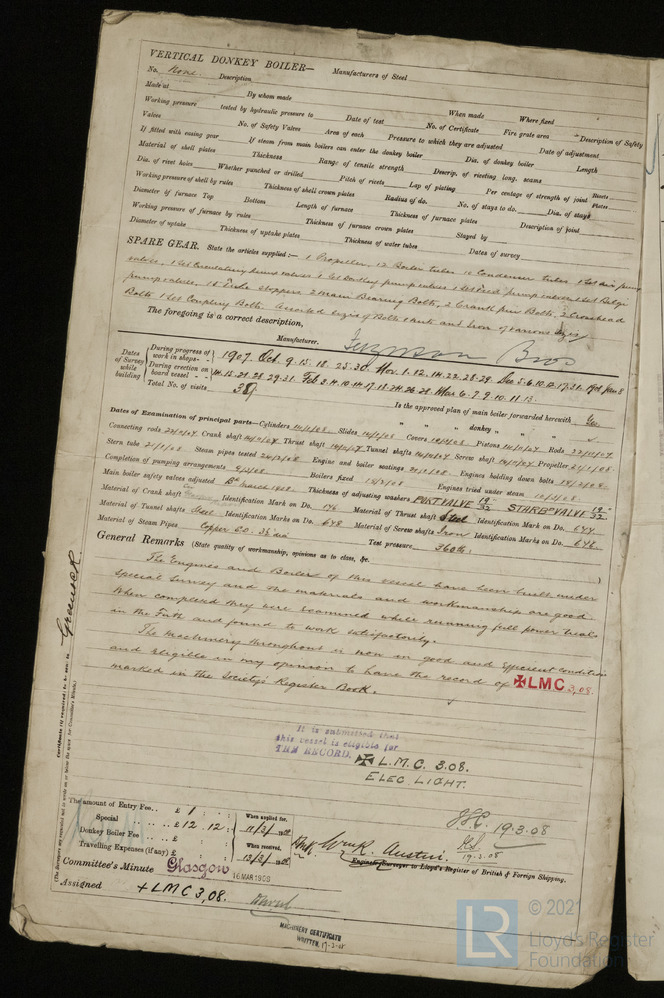 VERTICAL DONKEY BOILER— Manufacturers of Steel
No. None. Description
Made at By whom made When made Where fixed
Working pressure tested by hydraulic pressure to Date of test No. of Certificate Fire grate area Description of Safety
Valves No. of Safety Valves Area of each Pressure to which they are adjusted Date of adjustment
If fitted with easing gear If steam from main boilers can enter the donkey boiler Dia. of donkey boiler Length
Material of shell plates Thickness Range of tensile strength Descrip. of riveting long. seams
Dia. of rivet holes Whether punched or drilled Pitch of rivets Lap of plating Per centage of strength of joint Rivets Plates
Working pressure of shell by rules Thickness of shell crown plates Radius of do. No. of stays to do. Dia. of stays
Diameter of furnace Top Bottom Length of furnace Thickness of furnace plates Description of joint
Working pressure of furnace by rules Thickness of furnace crown plates Stayed by
Diameter of uptake Thickness of uptake plates Thickness of water tubes Dates of survey
SPARE GEAR. State the articles supplied:— 1 Propeller, 12 Boiler tubes 10 Condenser tubes 1 Set air pump
valves, 1 Set Circulating pump valves 1 Set Donkey pump valves 1 Set Feed pump valves 1 Set Bilge
pump valves. Tube stoppers 2 Main Bearing Bolts, 2 Crank pin Bolts, 2 Crosshead
Bolts 1 Set Coupling Bolts. Assorted sizes of Bolts & Nuts and Iron of various sizes
The foregoing is a correct description,
Ferguson Bros Manufacturer.
Dates of Survey while building
During progress of work in shops - - 1907. Oct. 9. 15. 18. 25. 30. Nov. 1. 12. 14. 22. 28. 29. Dec 5. 6. 10. 12. 17. 31. 1908 Jan 8
During erection on board vessel - - - 14. 15. 21. 28. 29. 31. Feb 3. 4. 10. 14. 17. 18. 24. 26. 28. Mar. 6. 7. 9. 10. 11. 13.
Total No. of visits 38
Is the approved plan of main boiler forwarded herewith Yes
" " " donkey " " "
Dates of Examination of principal parts—Cylinders Slides Covers Pistons Rods
Connecting rods Crank shaft Thrust shaft Tunnel shafts Screw shaft Propeller 21/1/08
Stern tube 21/1/08 Steam pipes tested 24/2/08 Engine and boiler seatings Engines holding down bolts
Completion of pumping arrangements Boilers fixed Engines tried under steam
Main boiler safety valves adjusted March 1908 Thickness of adjusting washers PORT VALVE 19/32 STARBD VALVE 19/32
Material of Crank shaft Identification Mark on Do. Material of Thrust shaft Steel Identification Mark on Do. 644
Material of Tunnel shafts Steel Identification Marks on Do. 648 Material of Screw shafts Iron Identification Marks on Do. 646
Material of Steam Pipes Copper Test pressure 360 lbs.
General Remarks (State quality of workmanship, opinions as to class, &c.
The Engines and Boiler of this vessel have been built under
Special Survey and the materials and workmanship are good.
When completed they were examined while running full power trials
in the Firth and found to work satisfactorily.
The machinery throughout is now in good and efficient condition
and eligible in my opinion to have the record of ✠LMC 3,08.
marked in the Society's Register Book.
Greenock
Certificate (if required) to be sent to
(The Surveyors are requested not to write on or below the space for Committee's Minute.)
It is submitted that
this vessel is eligible for
THE RECORD. ✠ L.M.C. 3.08.
ELEC. LIGHT.
The amount of Entry Fee.. £ 1 : :
Special .. £ 12 . 12 :
Donkey Boiler Fee .. .. £ : :
Travelling Expenses (if any) £ : :
When applied for,
11/3/1908
When received,
13/3/1908
19.3.08
19.3.08
Wm. R. Austin.
Engineer Surveyor to Lloyd's Register of British & Foreign Shipping.
Committee's Minute Glasgow 16 MAR 1908
Assigned + LMC 3,08.
MACHINERY CERTIFICATE
WRITTEN.
LR
© 2021
Lloyd's Register
Foundation